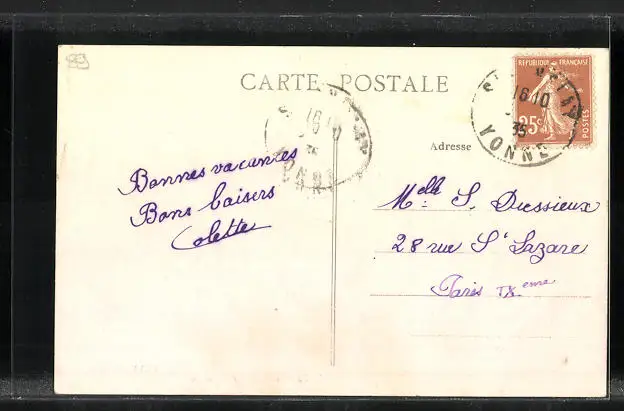 89
CARTE POSTALE
REPUBLIQUE FRANÇAISE
25c
POSTES
16 10
35
YONNE
16 10
YONNE
Adresse
Bonnes vacances
Bons baisers
Colette
Melle S. Dussieux
28 rue St Lazare
Paris IXeme